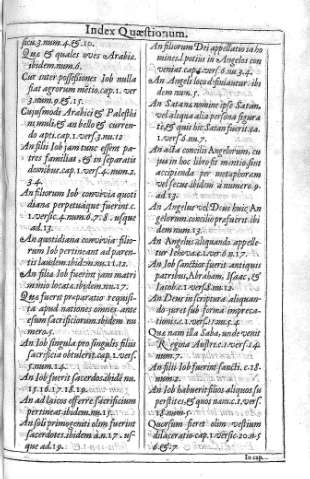 Index Quæstionum.
sicu.3.num.4.& 10.
Quæ & quales oves Arabiæ.
ibidem num.6.
Cur inter possessiones Iob nulla
fiat agrorum mẽtio.cap.1.ver
3.num.9.& 15.
Cujusmodi Arabici & Palesthi
ni muli, & an bello & curren-
do apti.cap.1.vers.3.nu.12
An filii Iob jam tunc essent pa-
tres familias, & in separatis
domibus.cap.1.vers.4.num.2.
3.4.
An filiorum Iob convivia quoti
diana perpetuaque fuerint.c.
1.versic.4.num.6.7.8. usque
ad.13.
An quotidiana convivia filio-
rum Iob pertineant ad paren-
tis laudem.ibidem.nu.11.12.
An filiæ Iob fuerint jam matri
minio locatæ.ibidem.nu.17.
Quæ fuerit præparatio requisi-
ta apud nationes omnes ante
esum sacrificiorum.ibidem nu
mero.5.
An Iob singula pro singulis filiis
sacrificia obtulerit.cap.1.vers.
5.num.14.
An Iob fuerit sacerdos.ibidẽ nu.
15.16.17.18.19.
An ad laicos offerre sacrificium
pertineat.ibidem.nu.15.
An soli primogeniti olim fuerint
sacerdotes.ibidem à.n.17. us-
que ad.19.
An filiorum Dei appellatio in ho
mines.l potius in Angelos con
veniat.cap.1.vers.6.nu.3.4.
An Angeli loco definiantur.ibi
dem num.5.
An Satanæ nomine ipse Satan,
vel aliqua alia persona figura
te, & quis hic Satan fuerit.ca.
1.vers.6.nu.7.
An acta concilii Angelorum, cu
jus in hoc libro fit mentio, sint
accipienda per metaphoram
vel secus.ibidem à numero.9.
ad.13.
An Angelus vel Deus huic An
gelorum concilio præfuerit.ibi
dem num.13.
An Angelus aliquando appelle-
tur Iehova.c.1.ver.6.n.17.
An Iob sanctior fuerit antiquis
patribus, Abraham, Isaac, &
Iacob.c.1.vers.8.nu.12.
An Deus in scriptura aliquan-
do juret sub forma impreca-
tionis.c.1.vers.11.nu.5.4.
Quæ nam illa Saba, unde venit
Regina Austri.c.1.vers.14.
num.7.
An filii Iob fuerint sancti.c.18.
num.2.
An Iob habuerit filios aliquos su
perstites, & quos nam.c.1.vers.
18.num.5.
Quorsum fieret olim vestium
dilaceratio.cap.1.versic.20.n.5
6.& 7.
In cap.